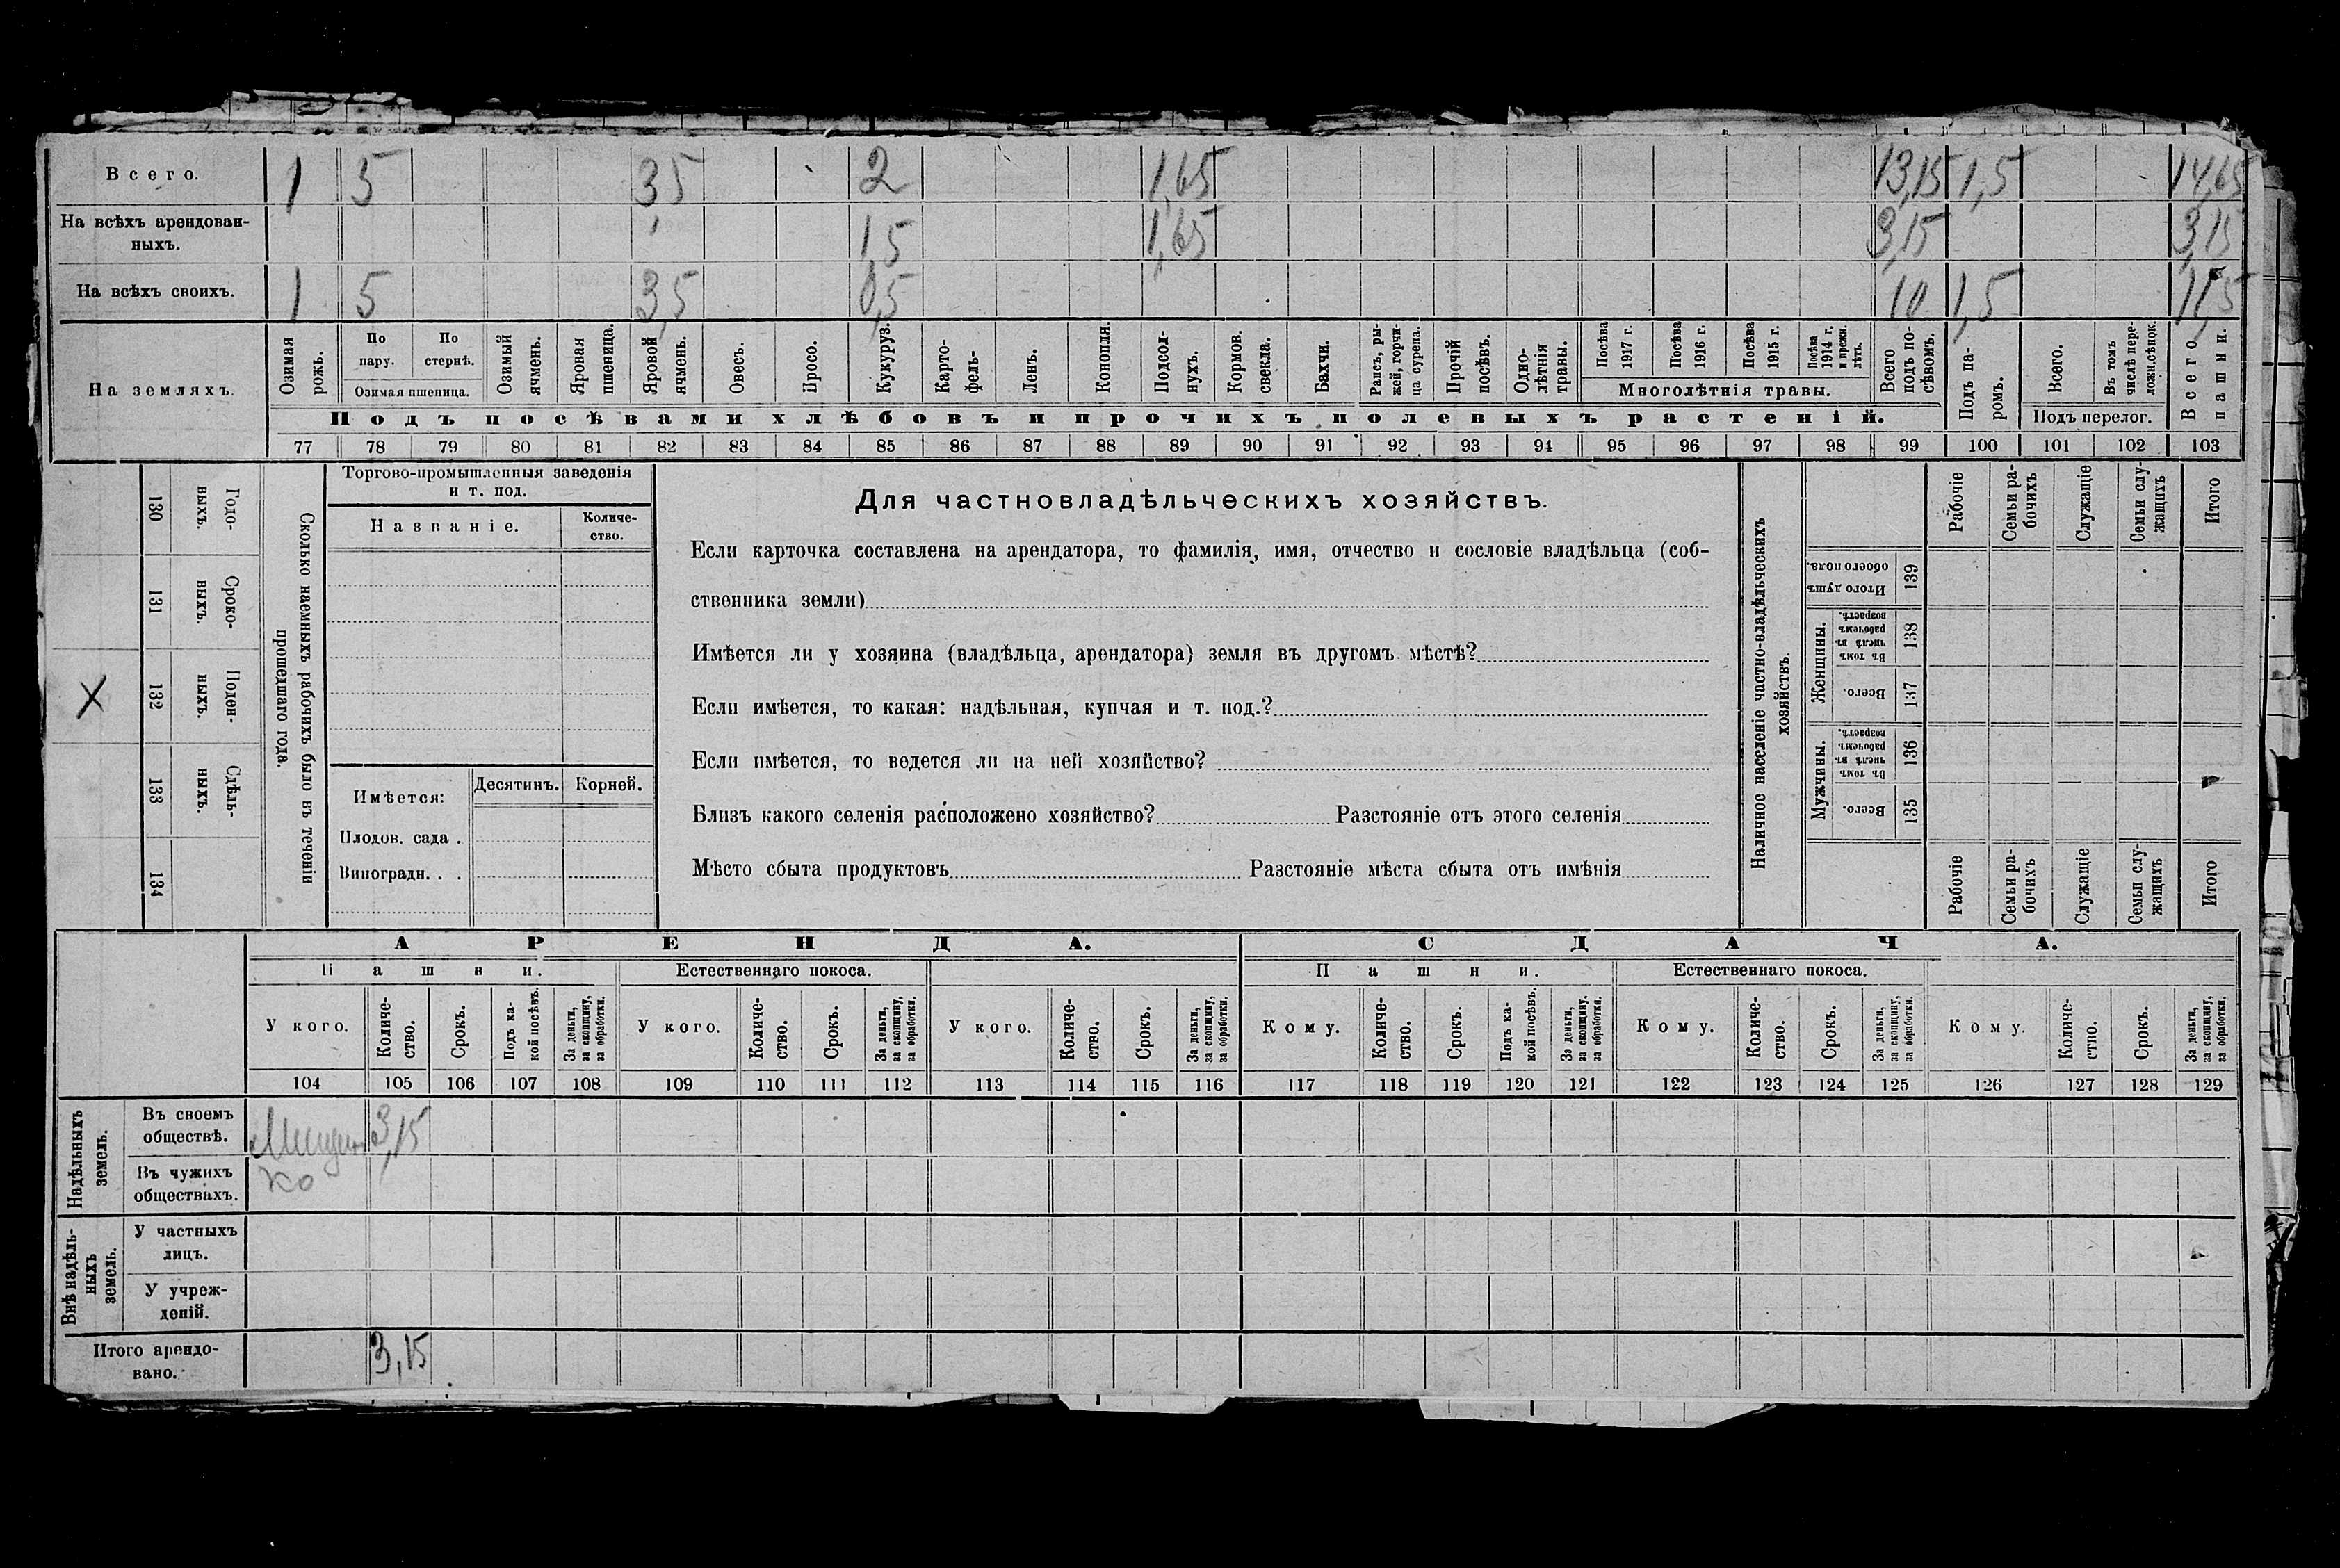 Всего. 1 5 3,5 2 1,65 13,15 1,5 14,65
На всѣхъ арендован-
ныхъ. 1,5 1,65 3,15 3,15
На всѣхъ своихъ. 1 5 3,5 0,5 10 1,5 11,5
На земляхъ.
Озимая рожь.
По пару.
По стернѣ.
Озимая пшеница.
Озимый ячмень.
Яровая пшеница.
Яровой ячмень.
Овесъ.
Просо.
Кукуруз.
Карто-
фель-
Ленъ.
Конопля.
Подсол-
нухъ.
Кормов. свекла.
Бахчи.
Рапсъ, ры-
жей, горчи-
ца сурепа.
Прочій посѣвъ.
Одно-
лѣтнія травы.
Посѣва 1917 г.
Посѣва 1916 г.
Посѣва 1915 г.
Посѣва 1914 г, и прежн. лѣтъ.
Многолѣтнія травы.
Всего подъ по-
сѣвомъ.
Подъ посѣвами хлѣбовъ и прочихъ полевыхъ растеній.
Подъ па-
ромъ.
Всего.
Въ томъ числѣ пере-
ложн.сѣнок.
Подъ перелог.
Всего пашни.
77 78 79 80 81 82 83 84 85 86 87 88 89 90 91 92 93 94 95 96 97 98 99 100 101 102 103
X
130 Годо-
выхъ.
131 Сроко-
выхъ.
132 Поден-
ныхъ.
133 Сдѣль-
ныхъ.
134
Сколько наемныхъ рабочихъ было въ теченіи
прошедшаго года.
Торгово-промышленныя заведенія
и т. под.
Названіе.
Количе-
ство.
Имѣется: Десятинъ. Корней.
Плодов. сада .
Виноградн. . .
Для частновладѣльческихъ хозяйствъ.
Если карточка составлена на арендатора, то фамилія, имя, отчество и сословіе владѣльца (соб-
ственника земли)
Имѣется ли у хозяина (владѣльца, арендатора) земля въ другомъ мѣстѣ?
Если имѣется, то какая: надѣльная, купчая и т. под.?
Если имѣется, то ведется ли на ней хозяйство?
Близъ какого селенія расположено хозяйство? Разстояніе отъ этого селенія
Мѣсто сбыта продуктовъ Разстояніе мѣста сбыта отъ имѣнія
Наличное населеніе частно-владѣльческихъ
хозяйствъ.
Рабочіе
Семьи ра-
бочихъ
Служащіе
Семьи слу-
жащихъ
Итого
Итого душъ обоего пола. 139
Женщины.
Въ томъ числѣ въ рабочемъ возрастѣ. 138
Всего. 137
Мужчины.
Въ томъ числѣ въ рабочемъ возрастѣ. 136
Всего. 135
Рабочіе
Семьи ра-
бочихъ
Служащіе
Семьи слу-
жащихъ
Итого
АРЕНДА. СДАЧА.
Пашни. Естественнаго покоса. Пашни. Естественнаго покоса.
У кого.
Количе-
ство.
Срокъ.
Подъ ка-
кой посѣвъ.
За деньги, за скопщину, за обработки.
У кого.
Количе-
ство.
Срокъ.
За деньги, за скопщину, за обработки.
У кого.
Количе-
ство.
Срокъ.
За деньги, за скопщину, за обработки.
Кому.
Количе-
ство.
Срокъ.
Подъ ка-
кой посѣвъ.
За деньги, за скопщину, за обработки.
Кому.
Количе-
ство.
Срокъ.
За деньги, за скопщину, за обработки.
Кому.
Количе-
ство.
Срокъ.
За деньги, за скопщину, за обработки.
104 105 106 107 108 109 110 111 112 113 114 115 116 117 118 119 120 121 122 123 124 125 126 127 128 129
Надѣльныхъ
земель.
Въ своемъ
обществѣ. 3,15
Въ чужихъ
обществахъ.
Внѣ надѣль-
ныхъ
земель.
У частныхъ
лицъ.
У учреж-
деній.
Итого арендо-
вано. 3,15